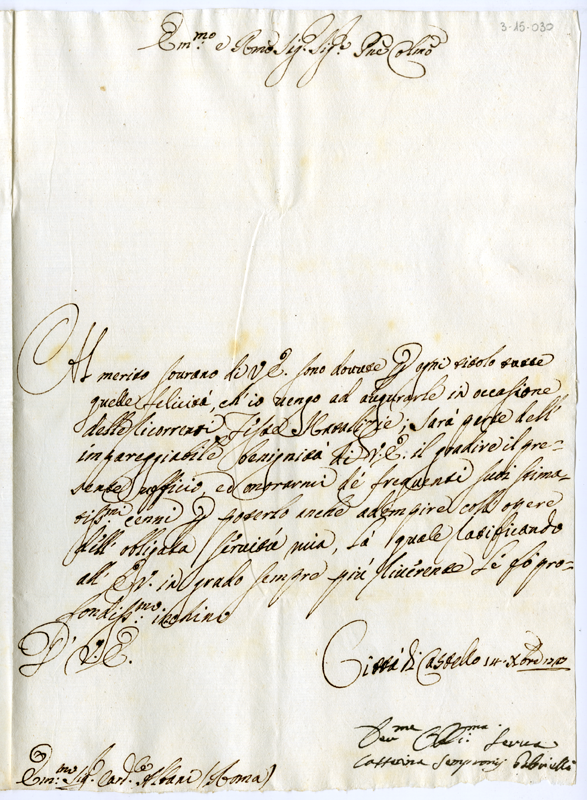 3-15-030
Em.mo e Rmo Sig.r Sig.r Pne Colmo
Al merito sourano di V.E. sono dovute p ogni titolo tutte
quelle felicità, ch'io vengo ad augurarle in occasione
delle ricorrenti Feste Natalizie; Sarà parte dell'
impareggiabile benignità di V.E. il gradire il pre-
sente ufficio, ed onorarmi de frequenti suoi stima-
tiss.mi cenni p poterlo anche adempire coll'opere
dell'obligata servitù mia, la quale ratificando
all'E.V. in grado sempre più riverente le fò pro-
fondiss.mo inchino
D' V.E.
Città di Castello 14 Xbre
Dev.ma Obl.ma Serva
Catterina Sempronij Gabrielli
Em.mo Sig.r Card.le Albani (Roma)